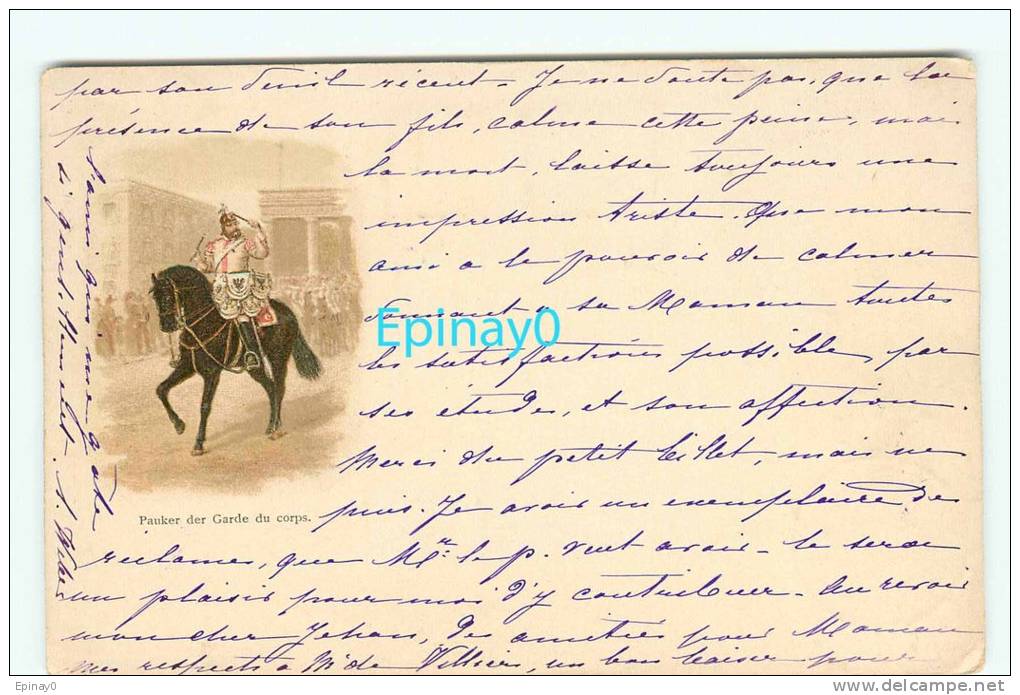 par son deuil récent - Je ne doute pas, que la
présence de son fils, calme cette peine, mais
la mort, laisse toujours une
impression triste. Que mon
ami a le pouvoir de calmer
donnant à sa Maman toutes
les satisfactions possible, par
ses études, et son affection.
Merci du petit billet, mais ne
puis. Je avais un exemplaire des
réclames, que Mr. le p. veut avoir - le serai
un plaisir pour moi d'y contribuer - Au revoir
mon cher Jehan, des amitiés pour Maman
mes respects à M. de Villiers, un bon baiser pour
l'ami qui me gâte
Pauker der Garde du corps.
Epinay0
Epinay0
www.delcampe.net